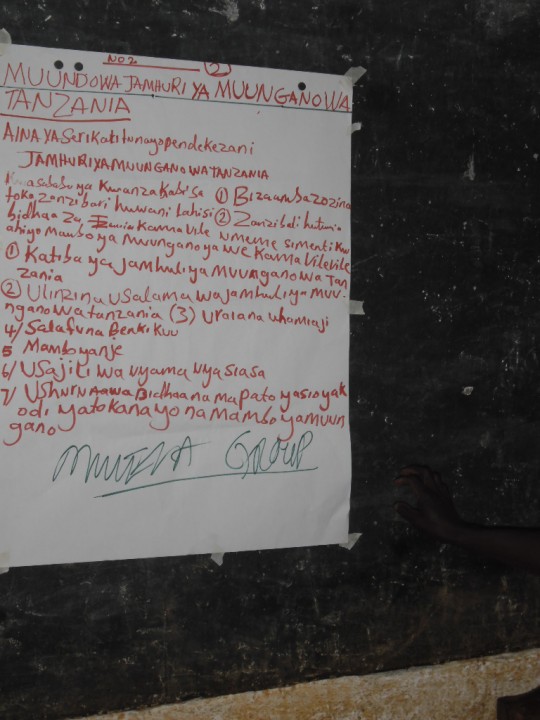 NO 2 (2)
MUUNDOWA JAMHURI YA MUUNGANO WA
TANZANIA
AINA YA Serikali tunayopendekezani
JAMHURI YA MUUNGANO WA TANZANIA
Kwasababu ya Kwanza Kabisa ① Bizaa mbazozina
toka Zanzibari huwani Lahisi ② Zanzibali hutumia
bidhaa za Kama Vile umeme simenti Kw
ahiyo Mambo ya Muungano ya we Kama Vilevile
① Katiba ya Jamhuli ya Muungano wa Tan
zania
② Ulinzi na Usalama wa jamhuli ya Muu-
ngano wa tanzania (3) Uraia na Uhamiaji
4/ Salafu na Benki Kuu
5 Mambo yanje
6/ Usajili wa Vyama vya siasa
7/ Ushuru wa Bidhaa na mapato yasiyo yak
odi yatokanayo na mambo ya muun
gano
GROUP